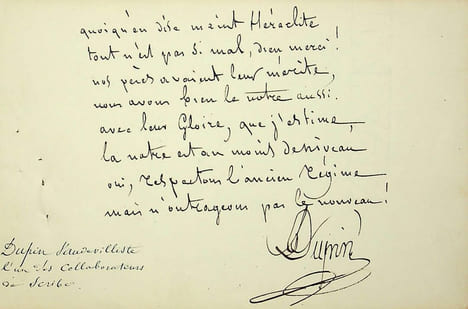 quoiqu'en dise maint Héraclite
tout n'est pas si mal, dieu merci!
nos pères avaient leur mérite,
nous avons bien le notre aussi.
avec leur Gloire, que j'estime,
la notre est au moins de niveau,
oui, respectons l'ancien Régime
mais n'outrageons pas le nouveau!
Dupin
Dupin Vaudevilliste
l'un des Collaborateurs
de Scribe